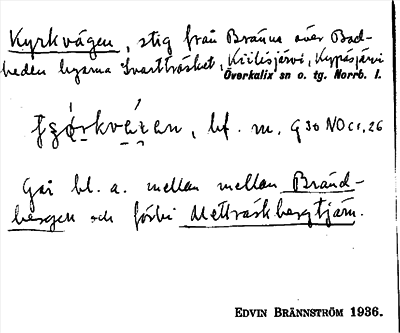 Kyrkvägen, stig från Bränna över Bad-
heden byarna Svartträsket, Kiilisjärvi, Kypäsjärvi
Överkalix sn o. tg. Norrb. l.
bf. m. 930 NO c1,26
Går bl. a. mellan mellan Bränd-
bergen och förbi Metträskbergtjärn.
EDVIN BRÄNNSTRÖM 1936.